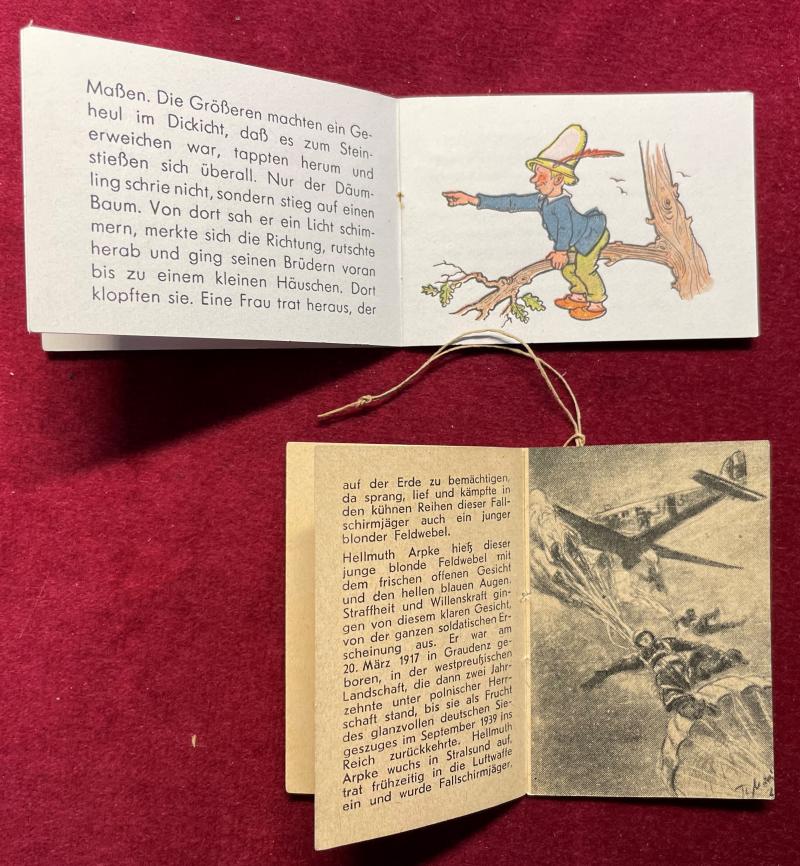 Maßen. Die Größeren machten ein Ge-
heul im Dickicht, daß es zum Stein-
erweichen war, tappten herum und
stießen sich überall. Nur der Däum-
ling schrie nicht, sondern stieg auf einen
Baum. Von dort sah er ein Licht schim-
mern, merkte sich die Richtung, rutschte
herab und ging seinen Brüdern voran
bis zu einem kleinen Häuschen. Dort
klopften sie. Eine Frau trat heraus, der
auf der Erde zu bemächtigen,
da sprang, lief und kämpfte in
den kühnen Reihen dieser Fall-
schirmjäger auch ein junger
blonder Feldwebel.
Hellmuth Arpke hieß dieser
junge blonde Feldwebel mit
dem frischen offenen Gesicht
und den hellen blauen Augen.
Straffheit und Willenskraft gin-
gen von diesem klaren Gesicht,
von der ganzen soldatischen Er-
scheinung aus. Er war am
20. März 1917 in Graudenz ge-
boren, in der westpreußischen
Landschaft, die dann zwei Jahr-
zehnte unter polnischer Herr-
schaft stand, bis sie als Frucht
des glanzvollen deutschen Sie-
geszuges im September 1939 ins
Reich zurückkehrte. Hellmuth
Arpke wuchs in Stralsund auf,
trat frühzeitig in die Luftwaffe
ein und wurde Fallschirmjäger.